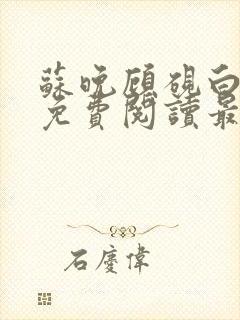 蘇晚顧硯白
免費閱讀最
石慶偉